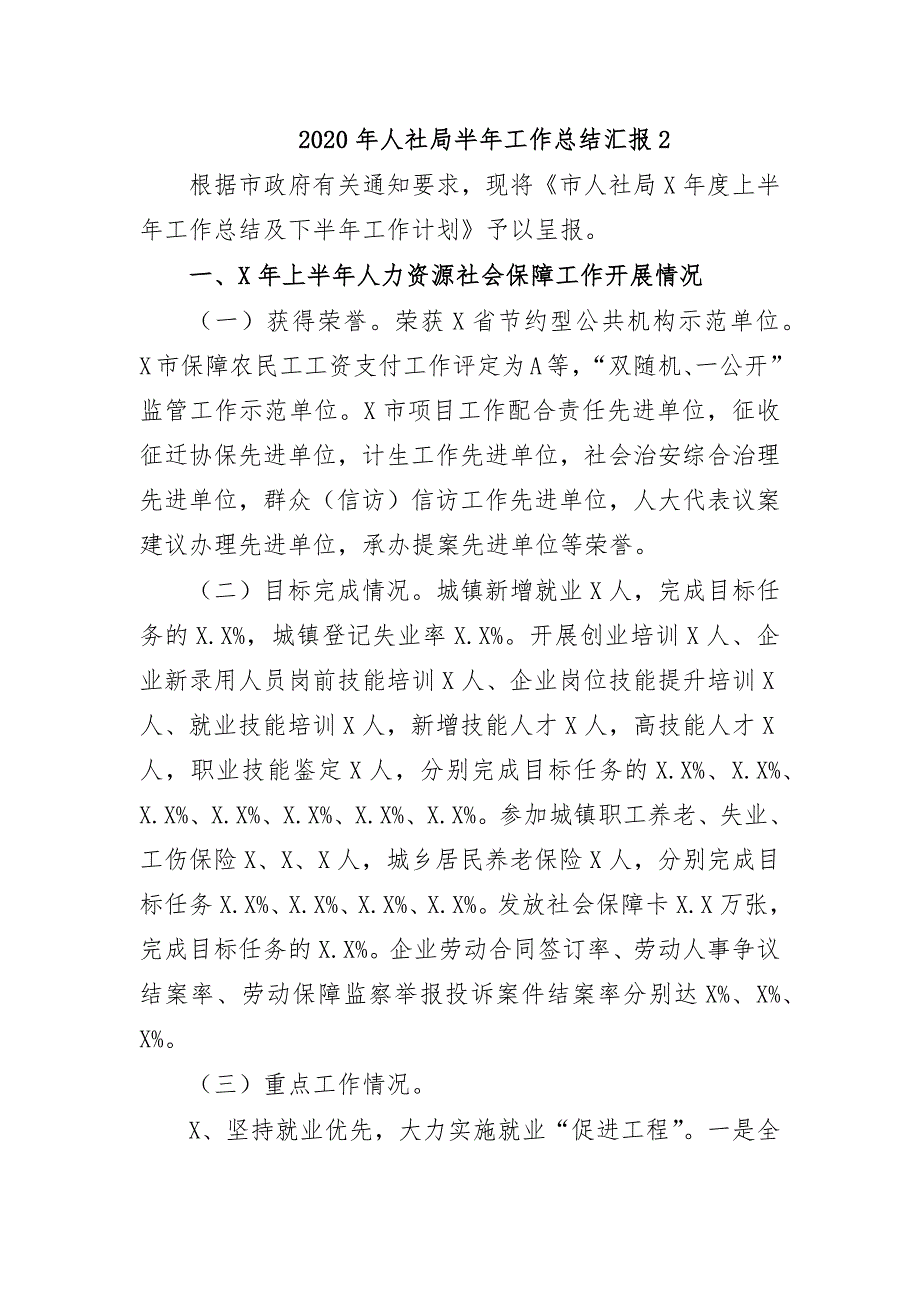 2020 年人社局半年工作总结汇报 2
根据市政府有关通知要求，现将《市人社局 X 年度上半
年工作总结及下半年工作计划》予以呈报。
一、X 年上半年人力资源社会保障工作开展情况
（一）获得荣誉。荣获 X 省节约型公共机构示范单位。
X 市保障农民工工资支付工作评定为 A 等，“双随机、一公开”
监管工作示范单位。X 市项目工作配合责任先进单位，征收
征迁协保先进单位，计生工作先进单位，社会治安综合治理
先进单位，群众（信访）信访工作先进单位，人大代表议案
建议办理先进单位，承办提案先进单位等荣誉。
（二）目标完成情况。城镇新增就业 X 人，完成目标任
务的 X.X%，城镇登记失业率 X.X%。开展创业培训 X 人、企
业新录用人员岗前技能培训 X 人、企业岗位技能提升培训 X
人、就业技能培训 X 人，新增技能人才 X 人，高技能人才 X
人，职业技能鉴定 X 人，分别完成目标任务的 X.X%、X.X%、
X.X%、X.X%、X.X%、X.X%、X.X%。参加城镇职工养老、失业、
工伤保险 X、X、X 人，城乡居民养老保险 X 人，分别完成目
标任务 X.X%、X.X%、X.X%、X.X%。发放社会保障卡 X.X 万张，
完成目标任务的 X.X%。企业劳动合同签订率、劳动人事争议
结案率、劳动保障监察举报投诉案件结案率分别达 X%、X%、
X%。
（三）重点工作情况。
X、坚持就业优先，大力实施就业“促进工程”。一是全